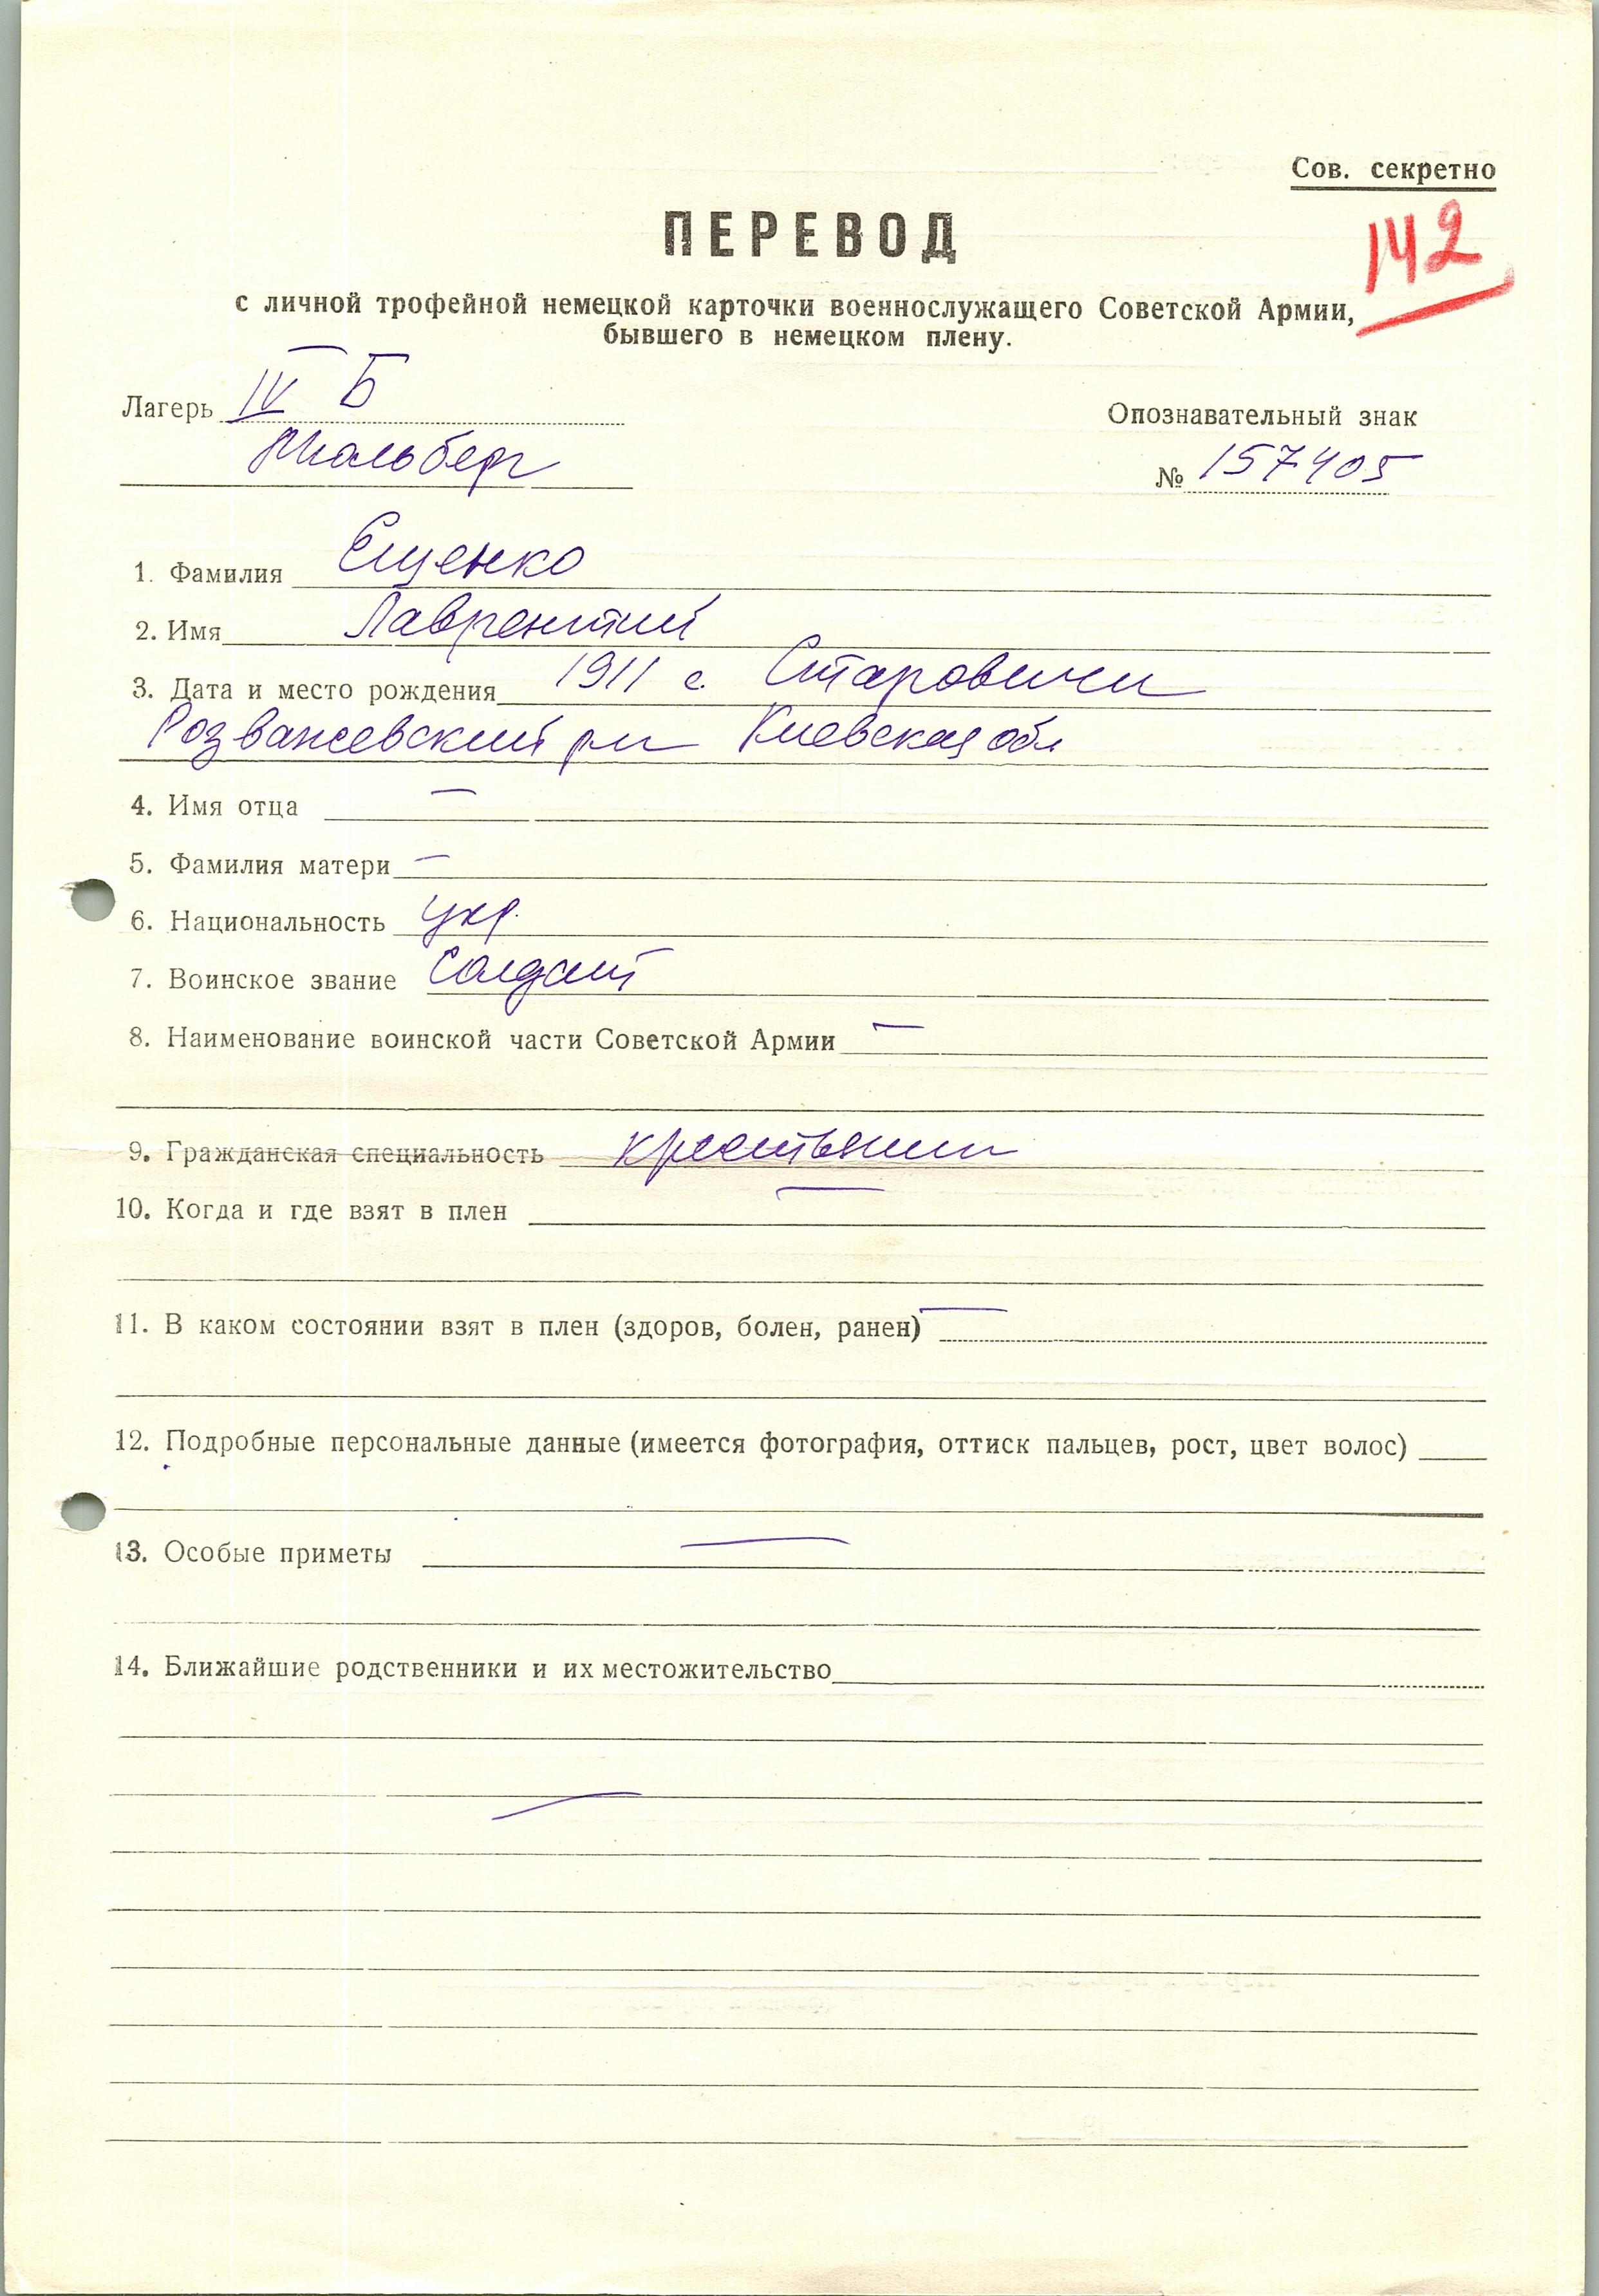 Сов. секретно
ПЕРЕВОД
142
с личной трофейной немецкой карточки военнослужащего Советской Армии,
бывшего в немецком плену.
Лагерь IV Б
Опознавательный знак
Мюльберг
№ 157405
1. Фамилия Ещенко
2. Имя Лаврентий
3. Дата и место рождения 1911 с. Старовичи
Розважевский р-н Киевская обл
4. Имя отца —
5. Фамилия матери —
6. Национальность укр.
7. Воинское звание Солдат
8. Наименование воинской части Советской Армии —
9. Гражданская специальность крестьянин
10. Когда и где взят в плен —
11. В каком состоянии взят в плен (здоров, болен, ранен) —
12. Подробные персональные данные (имеется фотография, оттиск пальцев, рост, цвет волос)
13. Особые приметы —
14. Ближайшие родственники и их местожительство
—